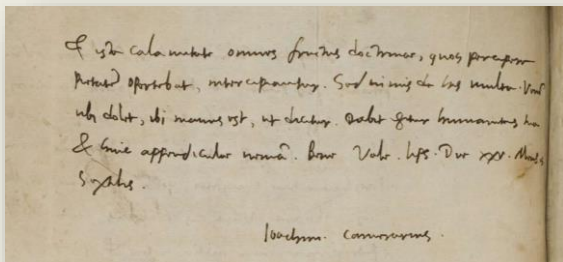 & ista calamitate omnes fructus doctrinae, quos percipere
oportebat, intercipiantur. Sed nimis de his multa.
ubi dolet, ibi manus est, ut dicitur. Dabit humanitas tua
& huic appendiculae veniam. Bene Vale. Lips. Die XXV. Mensis
Sextilis.
Ioachim. Camerarius.